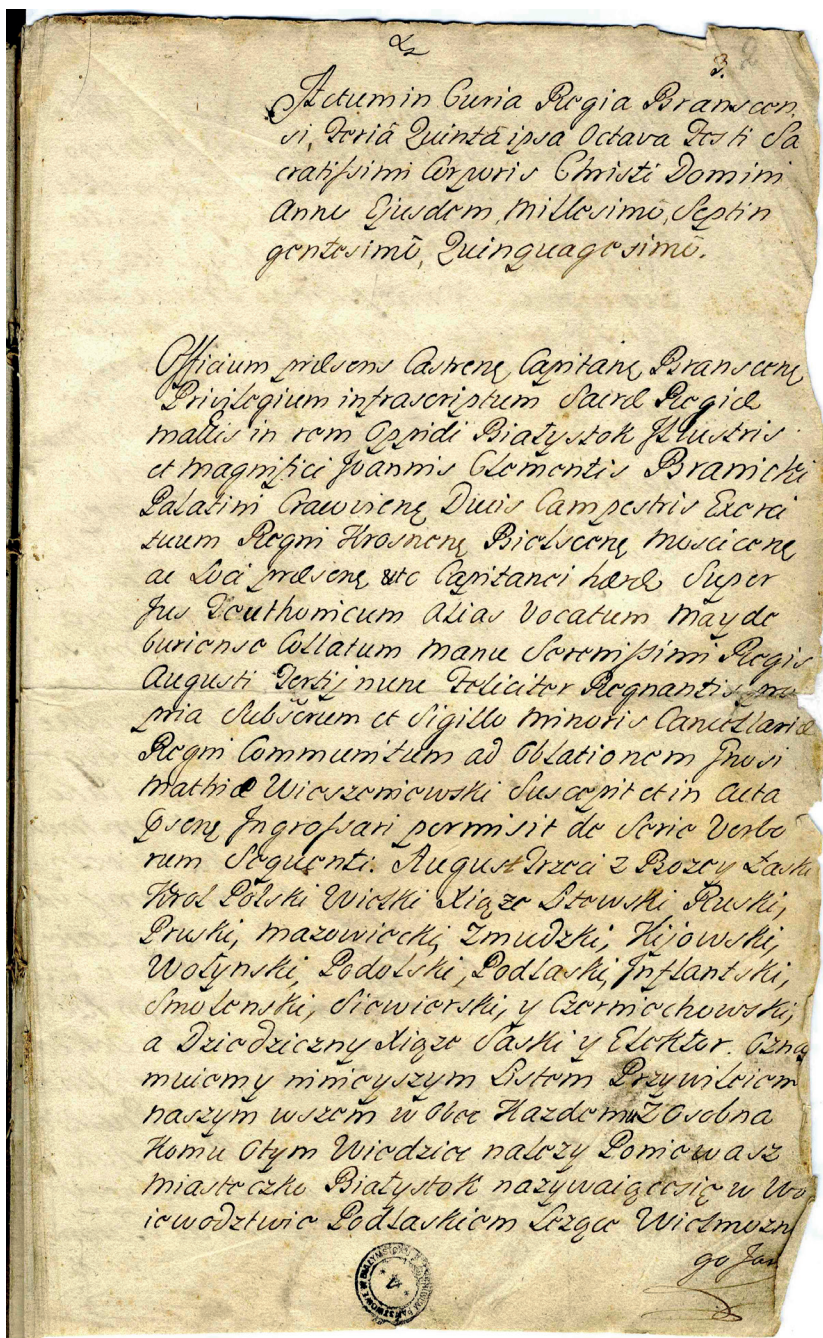 3. 2
Actum in Curia Regia Branscen
si, Feriā Quintā ipsa Octava Festi Sa
cratissimi Corporis Christi Domini
Anno Ejusdem, Millesimō, Septin
gentesimō, Quinquagesimō.
Officium præsens Castrenę Capitanę Branscenę
Privilegium infrascriptum Sacræ Regiæ
Mattis in rem Oppidi Białystok Illustris
et Magnifici Joannis Clementis Branicki
Palatini Cracvienę Ducis Campestris Exerci
tuum Regni Krosnenę Bielscenę Moscicenę
ac Loci præsenę Capitanei hæræ Super
Jus Teuthonicum alias Vocatum Mayde
buriense Collatum Manu Serenissimi Regis
Augusti Tertij nunc Feliciter Regnantis pro
pria Subscrum et Sigillo Minoris Cancellariæ
Regni Communitum ad Oblationem Gnosi
Mathiæ Wieszeniewski Suscepit et in Acta
psenę Ingrossari permisit de Serie Verbo
rum Sequenti. August Trzeci z Bozey Łaski
Krol Polski Wielki Xiąze Litewski Ruski,
Pruski, Mazowiecki, Zmudzki, Kijowski,
Wołynski, Podolski, Podlaski, Inflantski,
Smolenski, Siewierski, y Czerniechowski,
a Dziedziczny Xiąze Saski y Elektor. Ozna
muiemy ninieyszym Listem Przywileiem
naszym wszem w Obec Kazdemu z Osobna
Komu Otym Wiedziec nalezy Poniewasz
Miasteczko Białystok nazywaiącesię w Wo
iewodztwie Podlaskiem Lezące Wielmozn
go Jan